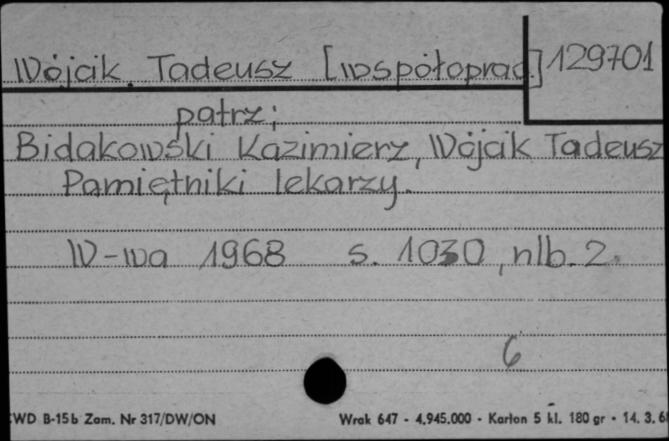 Wójcik Tadeusz [współoprac.] 129701
patrz:
Bidakowski Kazimierz, Wójcik Tadeusz
Pamiętniki lekarzy.
W-wa 1968 s. 1030, nlb. 2.
6
CWD B-15b Zam. Nr 317/DW/ON Wrak 647 - 4.945.000 - Karton 5 kl. 180 gr - 14. 3. 6